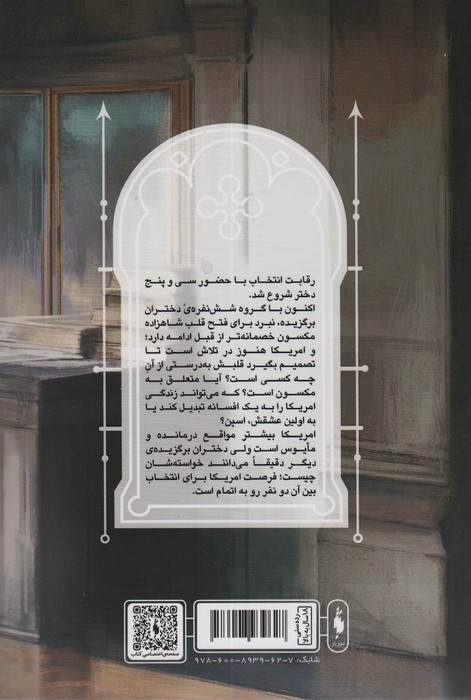 رقابت انتخاب با حضور سی و پنج
دختر شروع شد.
اکنون با گروه شش‌نفره‌ی دختران
برگزیده، نبرد برای فتح قلب شاهزاده
مکسون خصمانه‌تر از قبل ادامه دارد؛
و امریکا هنوز در تلاش است تا
تصمیم بگیرد قلبش به‌درستی از آنِ
چه کسی است؟ آیا متعلق به
مکسون است؟ که می‌تواند زندگی
امریکا را به یک افسانه تبدیل کند یا
به اولین عشقش، اسپن؟
امریکا بیشتر مواقع درمانده و
مأیوس است ولی دختران برگزیده‌ی
دیگر دقیقاً می‌دانند خواسته‌شان
چیست؛ فرصت امریکا برای انتخاب
بین آن دو نفر رو به اتمام است.
رده‌سنی
۱۸سال‌به‌بالا
صفحه‌ی اختصاصی کتاب
شابک: ۷-۶۲-۸۹۳۹-۶۰۰-۹۷۸